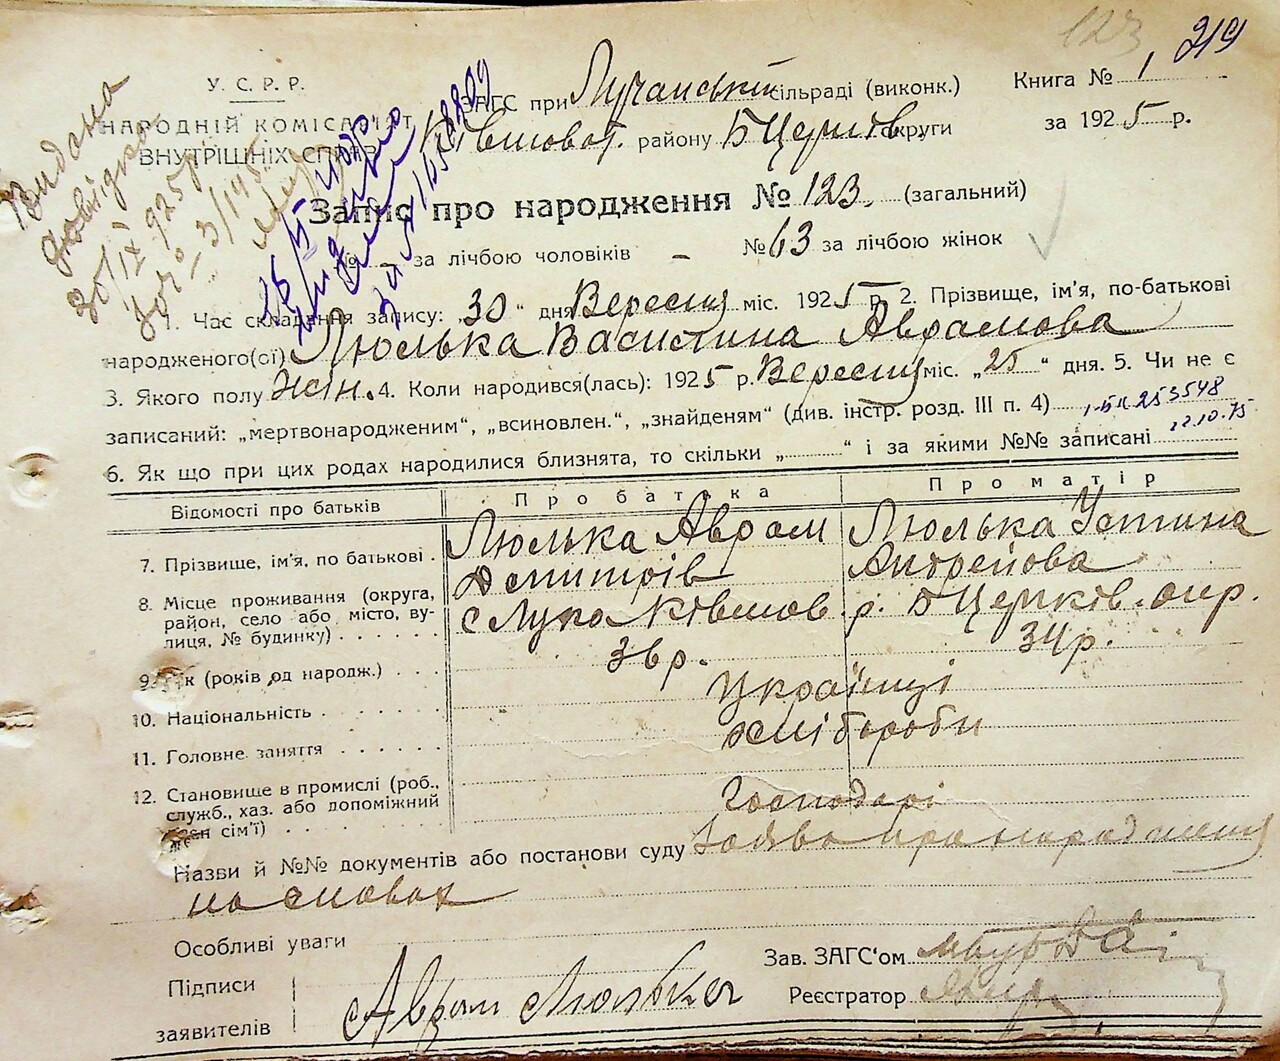 123 219
У. С. Р. Р.
НАРОДНІЙ КОМІСАРІЯТ
ВНУТРІШНІХ СПРАВ
ЗАГС при Лучанській сільраді (виконк.) Книга № 1
Ківшоват. району БЦерків округи за 1925 р.
Видана
довідка
30/IX 925 р.
Запис про народження № 123. (загальний)
№ – за лічбою чоловіків – № 63 за лічбою жінок
1. Час складання запису: „30“ дня Вересня міс. 1925 р. 2. Прізвище, ім'я, по-батькові
народженого(ої) Люлька Василина Аврамова
3. Якого полу Жін. 4. Коли народився(лась): 1925 р. Вересня міс. „25“ дня. 5. Чи не є
записаний: „мертвонародженим“, „всиновлен.“, „знайденям“ (див. інстр. розд. III п. 4) 253548
22.10.75
6. Як що при цих родах народилися близнята, то скільки „ “ і за якими №№ записані
Відомості про батьків Про батька Про матір
7. Прізвище, ім'я, по батькові . Люлька Аврам Люлька Устина
Дмитрів Андреїова
8. Місце проживання (округа, район, село або місто, вулиця, № будинку) . . . . . с Лука Ківшов. р. БЦерків. окр.
9. Вік (років од народж.) . . . 36 р. 34 р.
10. Національність . . . . . . . Українці
11. Головне заняття . . . . . . хлібороби
12. Становище в промислі (роб., служб., хаз. або допоміжний член сім'ї) . . . . . . . . Господарі
Назви й №№ документів або постанови суду Заява про народження
на словах
Особливі уваги
Підписи
заявителів Аврам Люлька
Зав. ЗАГС'ом
Реєстратор